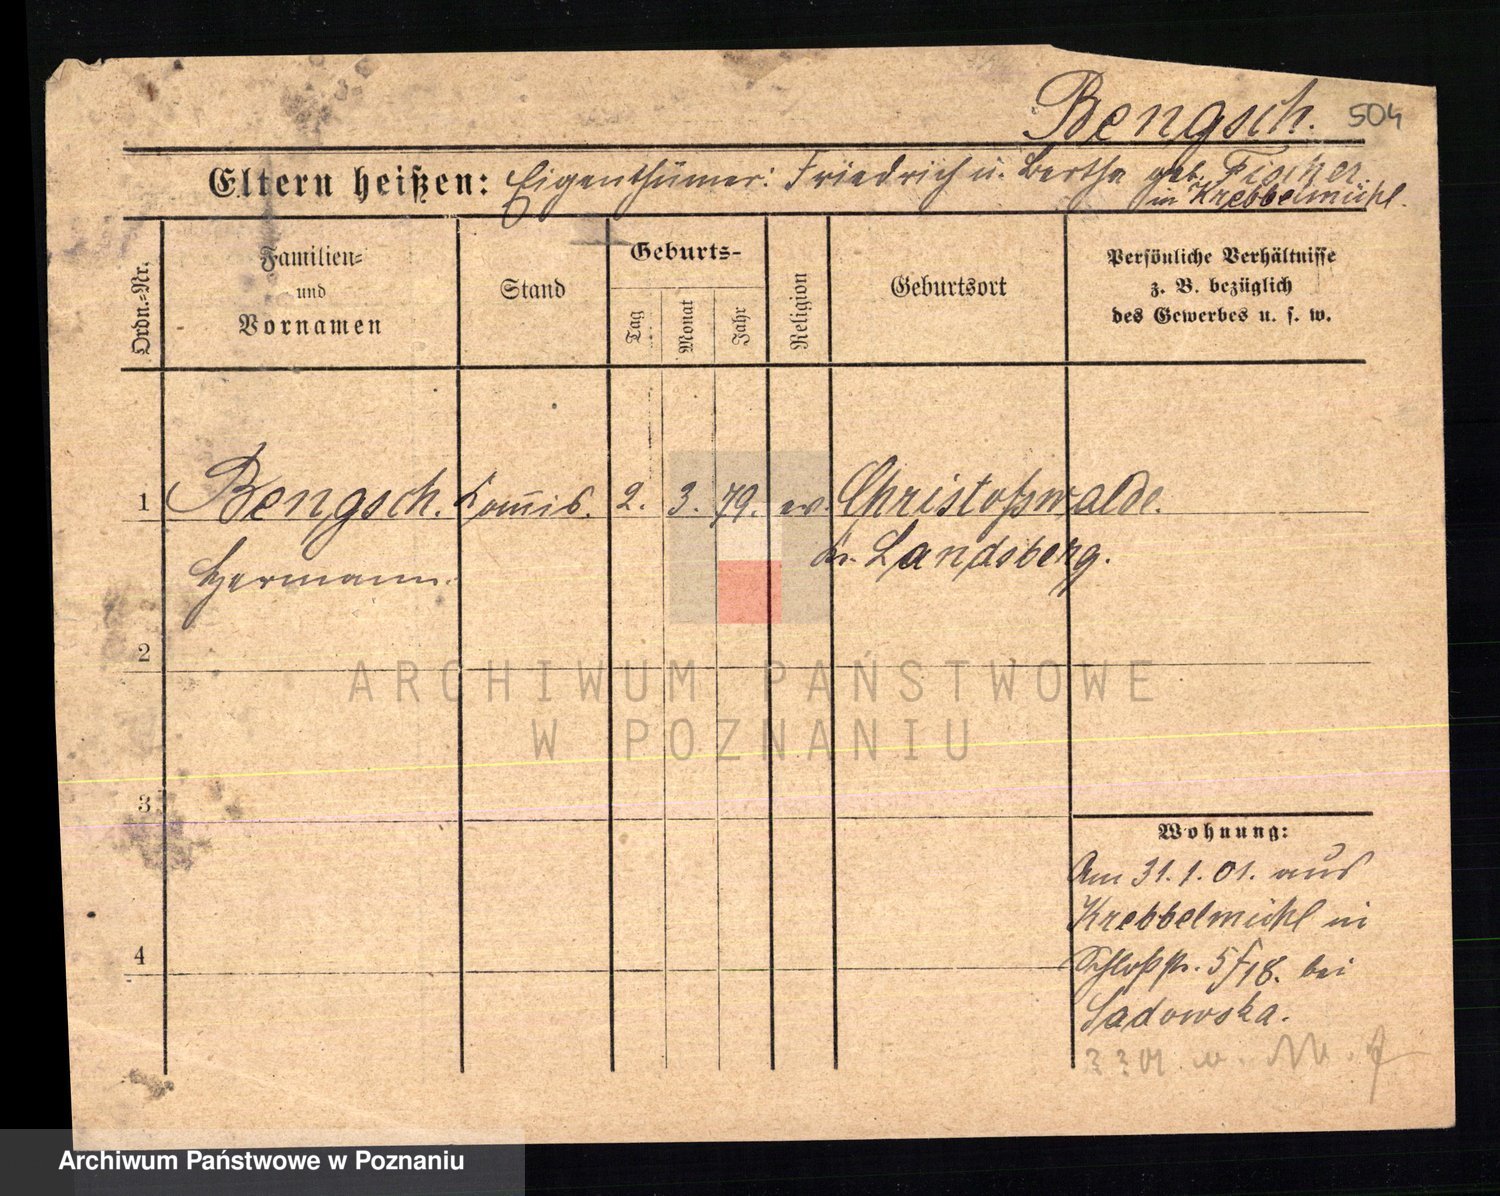 Bengsch. 504
Eltern heißen: Eigenthümer: Friedrich u. Bertha geb. Fischer.
in Krebbelmühl.
Ordn.-Nr.
Familien-
und
Vornamen
Stand
Geburts-
Tag
Monat
Jahr
Religion
Geburtsort
Persönliche Verhältnisse
z. B. bezüglich
des Gewerbes u. s. w.
1 Bengsch. Commis. 2. 3. 79. ev. Christofswalde.
Kr. Landsberg.
Hermann.
2
ARCHIWUM PAŃSTWOWE
W POZNANIU
3
Wohnung:
Am 31. 1. 01. aus
Krebbelmühl in
4
Schloßstr. 5/18. bei
Sadowska.
Archiwum Państwowe w Poznaniu